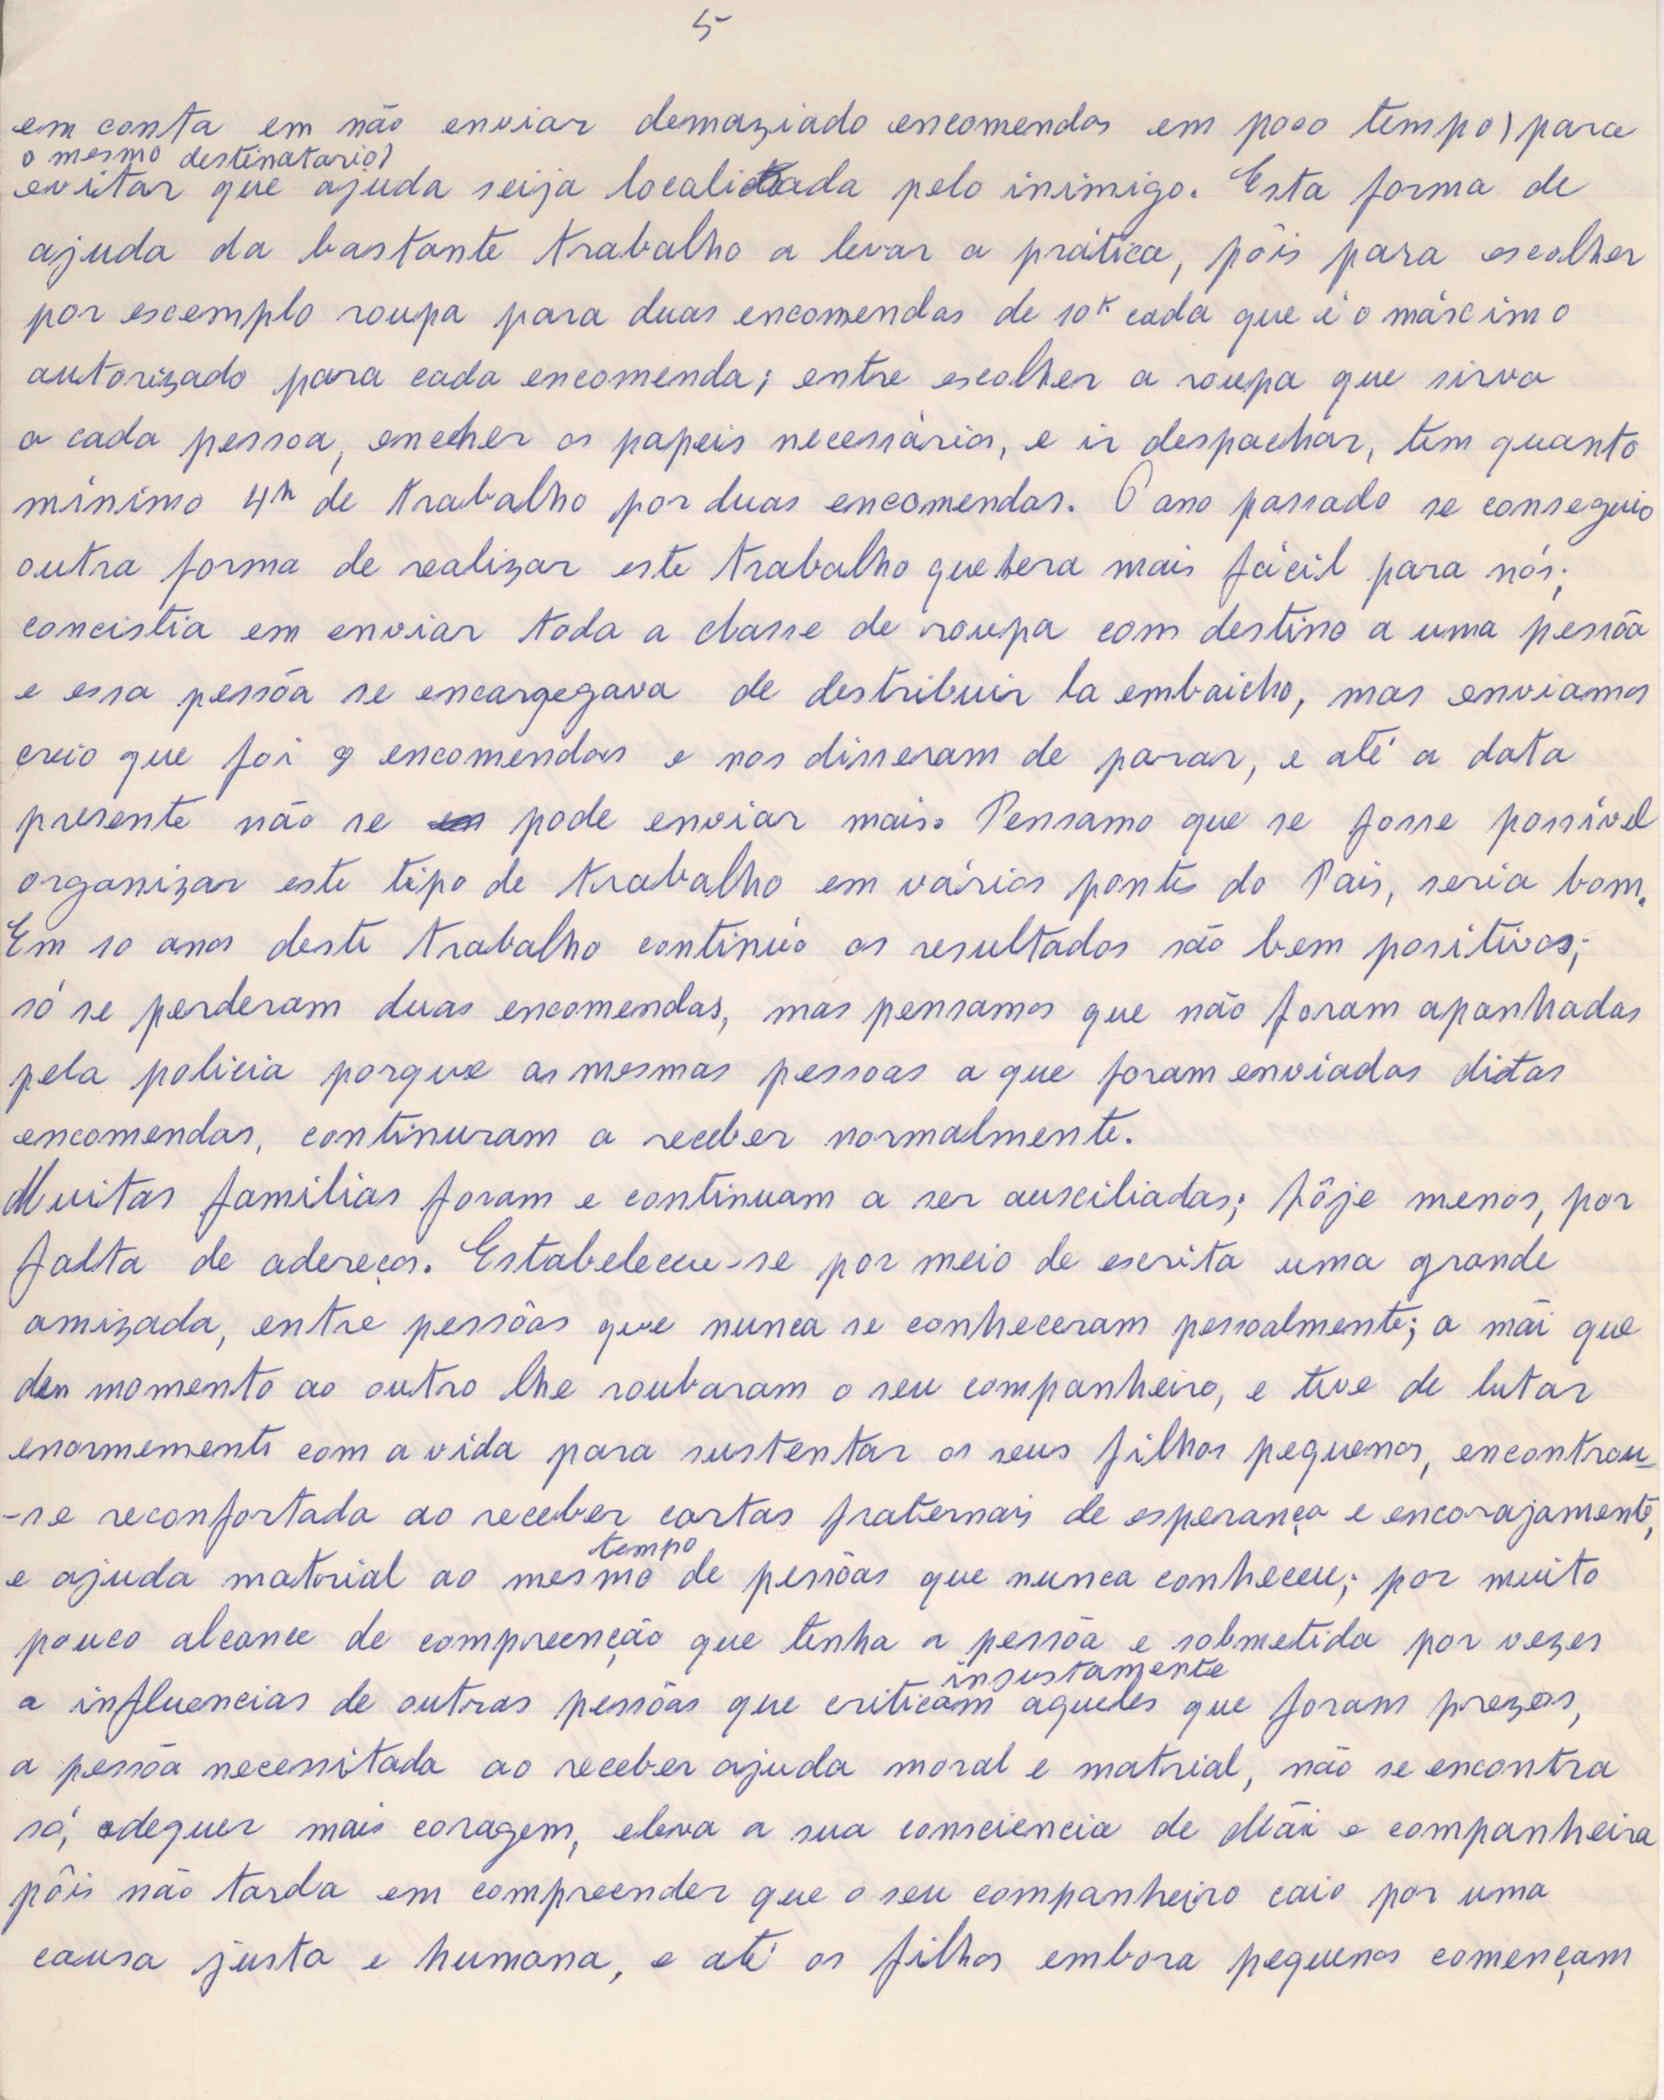 5
em conta em não enviar demaziado encomendas em poco tempo) para
o mesmo destinatario)
evitar que ajuda seija localidada pelo inimigo. Esta forma de
ajuda da bastante trabalho a levar a prática, pôis para escolher
por escemplo roupa para duas encomendas de 10k cada que é o máscimo
autorizado para cada encomenda; entre escolher a roupa que sirva
a cada pessoa, enecher os papeis necessários, e ir despachar, tem quanto
minimo 4h de trabalho por duas encomendas. O ano passado se conseguio
outra forma de realizar este trabalho que hera mais fácil para nós;
concistia em enviar toda a classe de roupa com destino a uma pessôa
e essa pessôa se encargegava de destribuir la embaicho, mas enviamos
creio que foi 9 encomendas e nos disseram de parar, e até a data
presente não se pode enviar mais. Pensamo que se fosse possível
organizar este tipo de trabalho em vários pontes do Pais, seria bom.
Em 10 anos deste trabalho continúo os resultados são bem positivos;
só se perderam duas encomendas, mas pensamos que não foram apanhadas
pela policia porque as mesmas pessoas a que foram enviadas ditas
encomendas, continuram a receber normalmente.
Muitas familias foram e continuam a ser ausciliadas; hôje menos, por
falta de adereços. Estabeleceu-se por meio de escrita uma grande
amizada, entre pessôas que nunca se conheceram pessoalmente; a mãi que
den momento ao outro lhe roubaram o seu companheiro, e tive de lutar
enormemente com a vida para sustentar os seus filhos pequenos, encontrou-
-se reconfortada ao receber cartas fraternais de esperança e encorajamento,
tempo
e ajuda matrial ao mesmo de pessôas que nunca conheceu; por muito
pouco alcance de compreenção que tenha a pessôa e sobmetida por vezes
insustamente
a influencias de outras pessôas que criticam aqueles que foram prezos,
a pessôa necessitada ao receber ajuda moral e matrial, não se encontra
só, adequer mais coragem, eleva a sua consciencia de Mãi e companheira
pôis não tarda em compreender que o seu companheiro caio por uma
causa justa e humana, e até os filhos embora pequenos començam